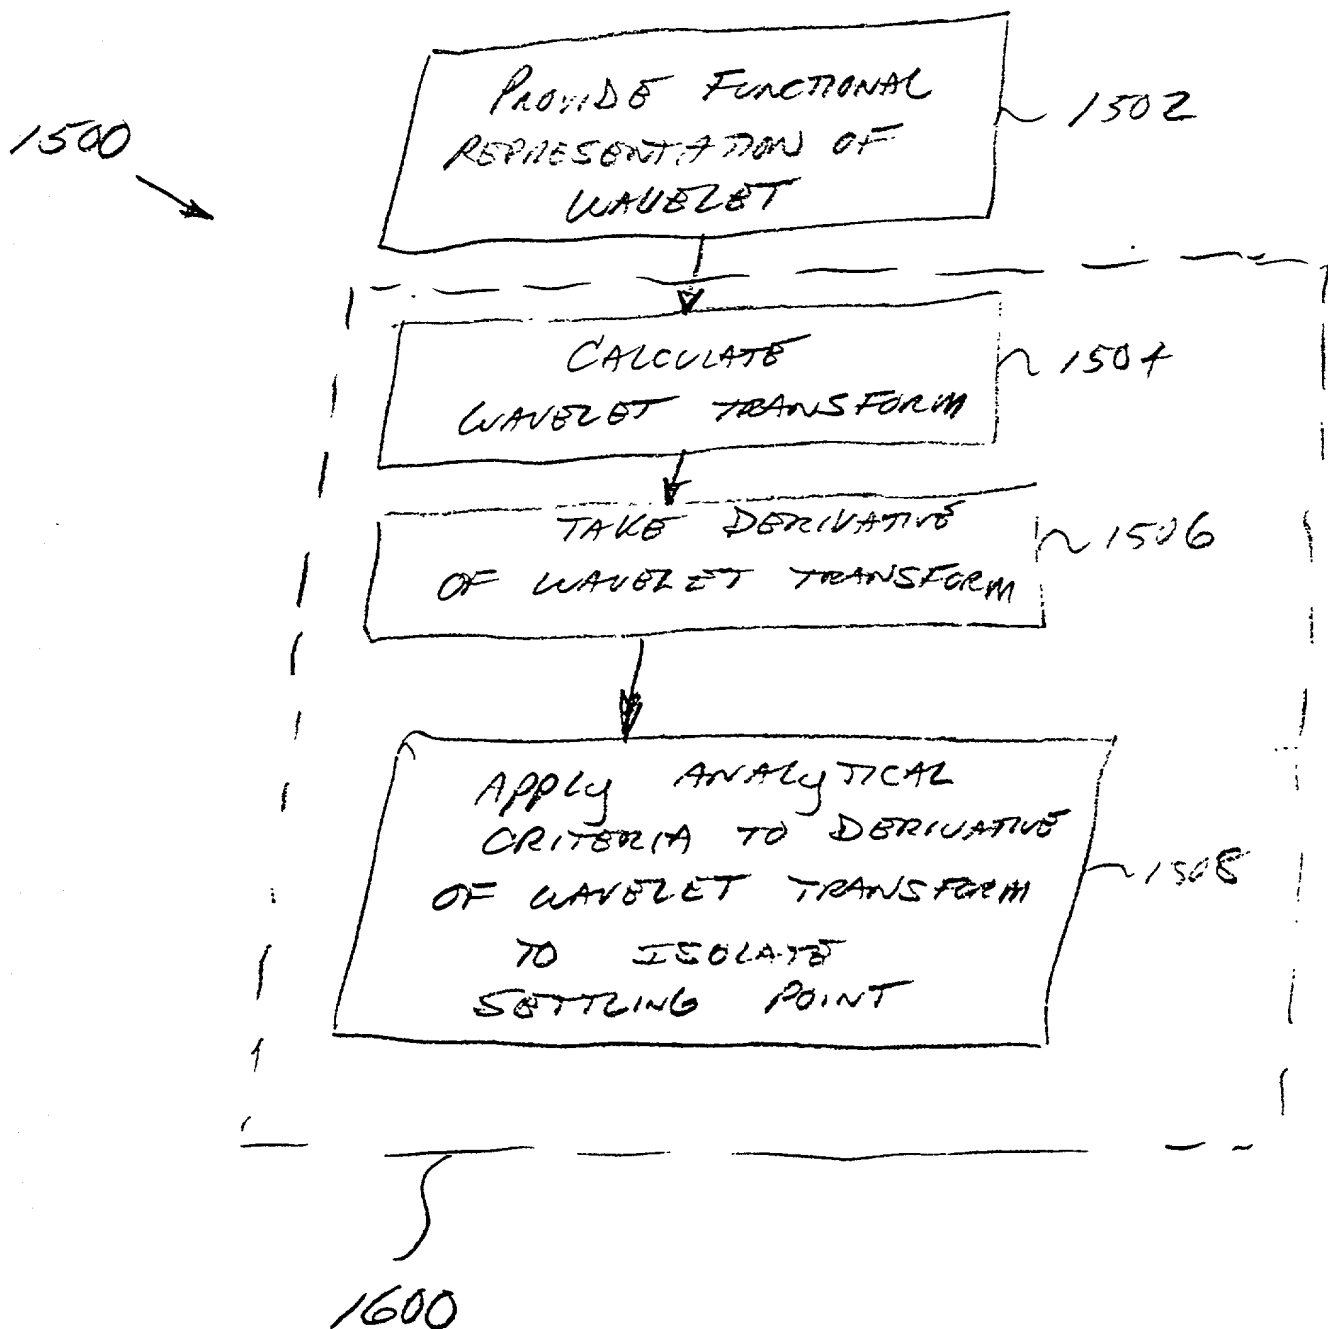 1500
PROVIDE FUNCTIONAL
REPRESENTATION OF
WAVELET
1502
CALCULATE
WAVELET TRANSFORM
1504
TAKE DERIVATIVE
OF WAVELET TRANSFORM
1506
APPLY ANALYTICAL
CRITERIA TO DERIVATIVE
OF WAVELET TRANSFORM
TO ISOLATE
SETTLING POINT
1508
1600